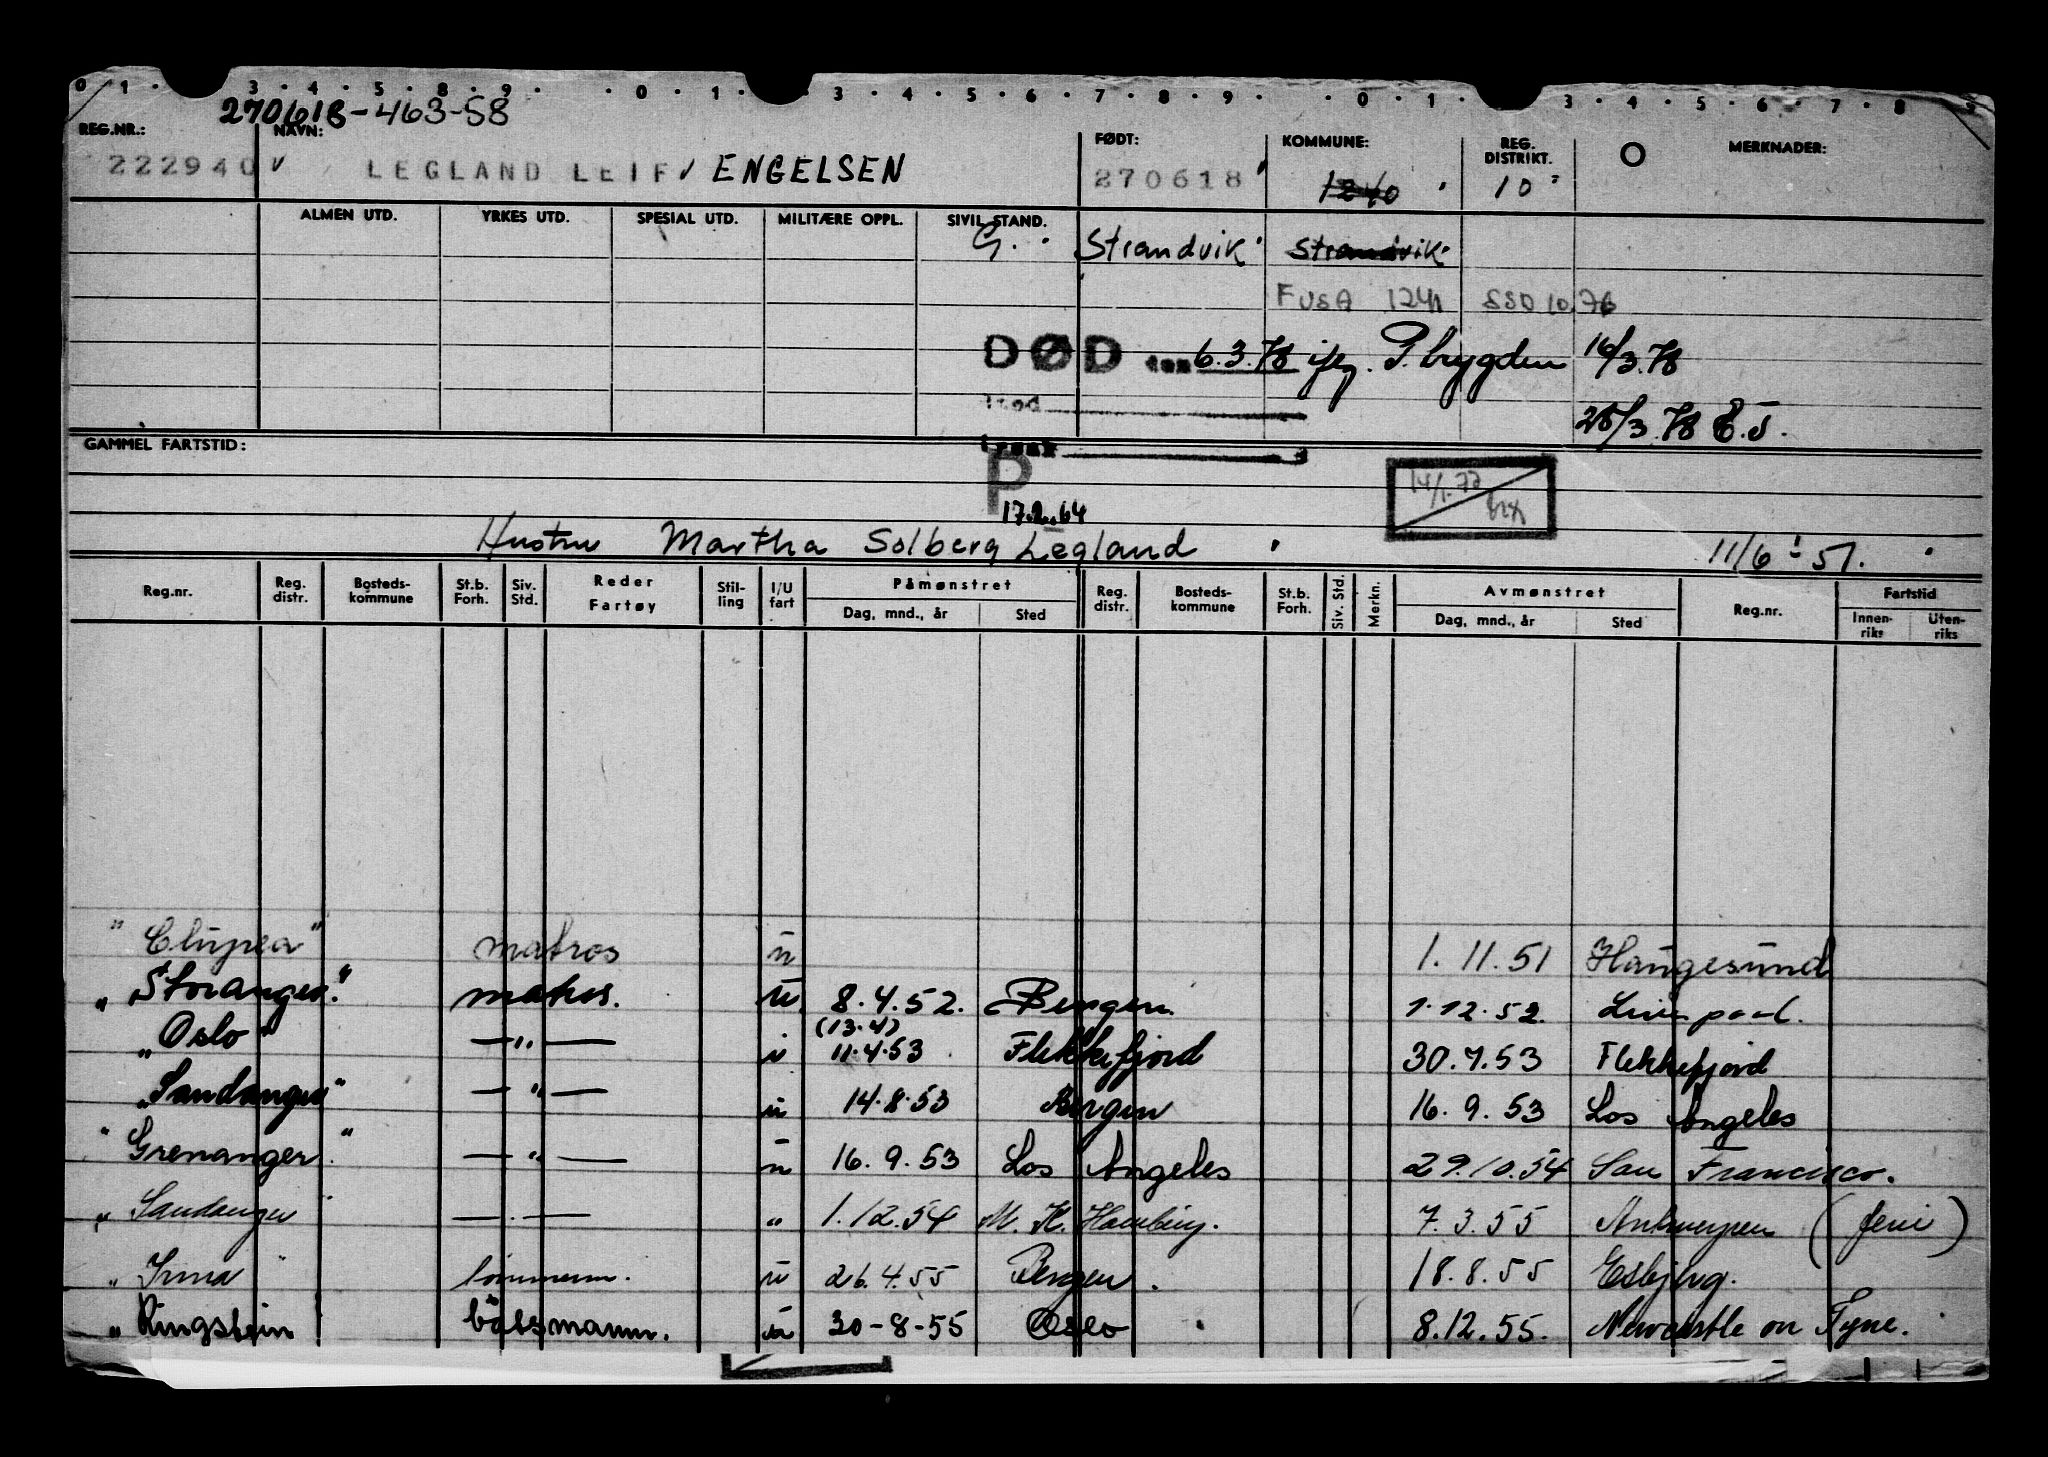 0 1 · 3 · 4 · 5 · 8 · 9 · · 0 · 1 · 3 · 4 · 5 · 6 · 7 · 8 · 9 · · 0 · 1 · 3 · 4 · 5 · 6 · 7 · 8 9
270618-463-58
REG.NR.: NAVN: FØDT: KOMMUNE: REG. DISTRIKT. O MERKNADER:
222940 LEGLAND LEIF ENGELSEN 270618 1240 10
ALMEN UTD. YRKES UTD. SPESIAL UTD. MILITÆRE OPPL. SIVIL STAND.
G. Strandvik Strandvik
FUSA 1241 SSD 10.76
DØD den 6.3.78 iflg. P. brygden 16/3.78
sted
28/3.78 E.J.
GAMMEL FARTSTID: årsak
P 14/1.77
17.2.64
Hustru Martha Solberg Legland 11/6 - 51.
Reg.nr. Reg. distr. Bosteds-kommune St.b. Forh. Siv. Std. Reder Fartøy Stil-ling I/U fart Påmønstret Dag, mnd., år Sted Reg. distr. Bosteds-kommune St.b. Forh. Siv. Std. Merkn. Avmønstret Dag, mnd., år Sted Reg.nr. Fartstid Innen-riks Uten-riks
"Clupea" matros u 1.11.51 Haugesund
"Storanger." matros. u. 8.4.52. Bergen. 1.12.52. Liverpool.
(13.4)
"Oslo" — " — i 11.4.53 Flekkefjord 30.7.53 Flekkefjord
"Sandanger" — " — u 14.8.53 Bergen 16.9.53 Los Angeles
"Grenanger." — " — u 16.9.53 Los Angeles 29.10.54 San Francisco.
"Sandanger" — " — " 1.12.54 M. K. Hamburg. 7.3.55 Antwerpen (ferie)
"Irma" tømmerm. u 26.4.55 Bergen. 18.8.55 Esbjerg.
"Ringstein båtsmann. u 30-8-55 Oslo 8.12.55. Newcastle on Tyne.